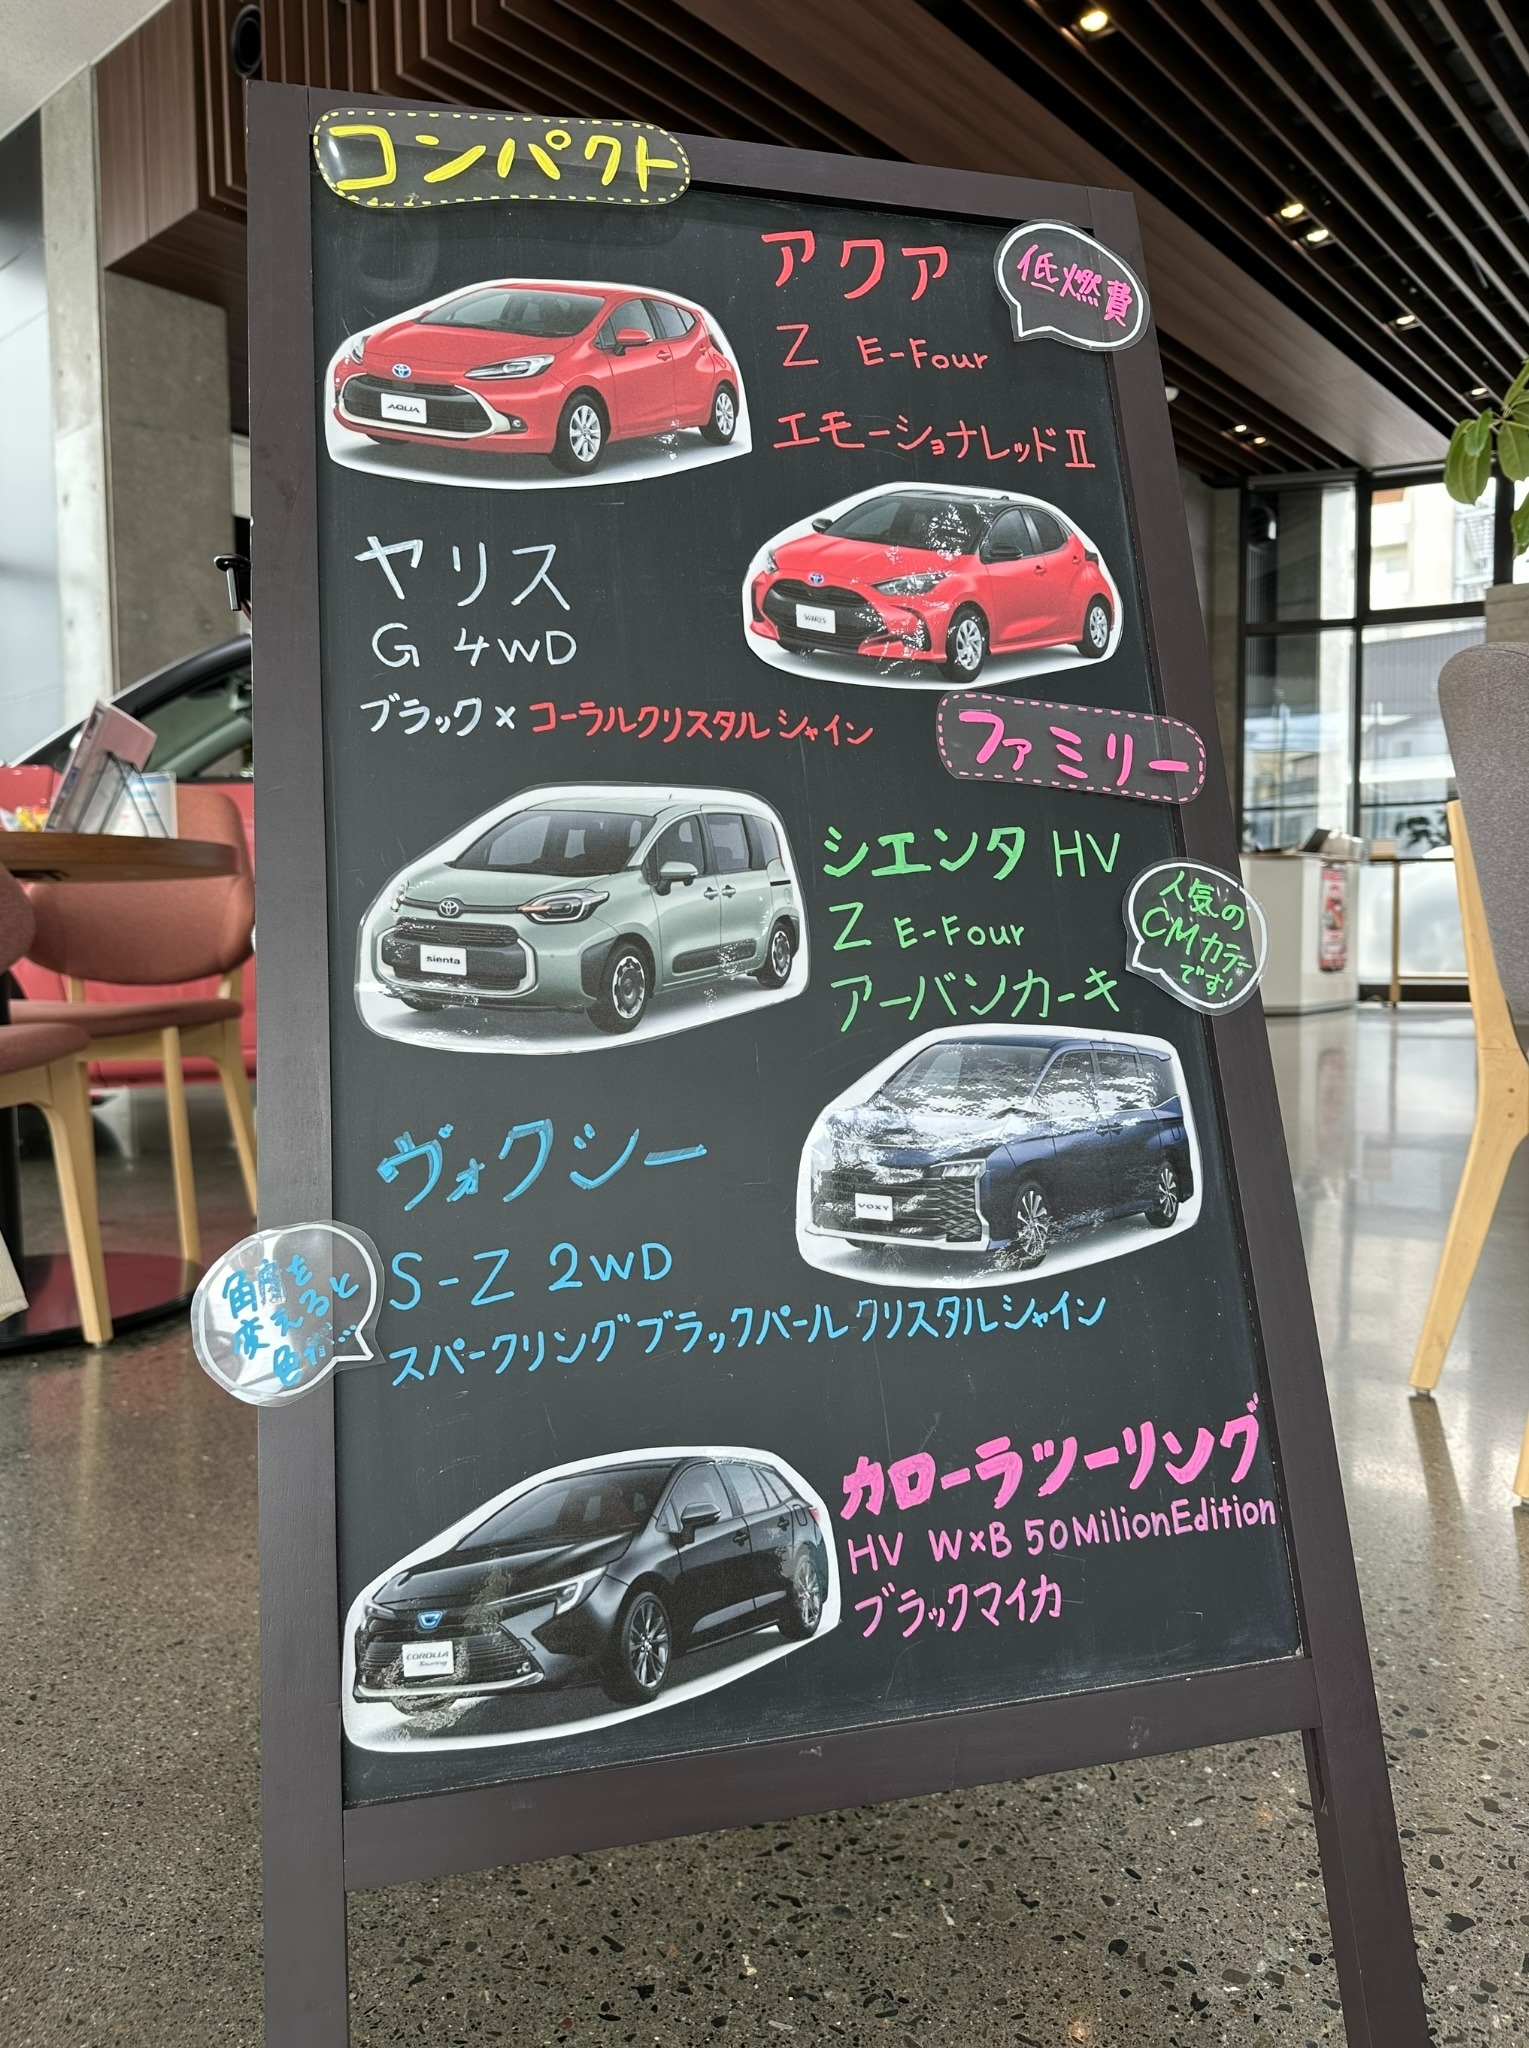 コンパクト
アクア
低燃費
Z E-Four
エモーショナルレッドⅡ
AQUA
ヤリス
G 4WD
ブラック×コーラルクリスタルシャイン
YARIS
ファミリー
シエンタ HV
Z E-Four
アーバンカーキ
人気の
CMカラー
です!
sienta
ヴォクシー
S-Z 2WD
スパークリングブラックパールクリスタルシャイン
角度を
変えると
色が…
VOXY
カローラツーリング
HV W×B 50MilionEdition
ブラックマイカ
COROLLA
Touring